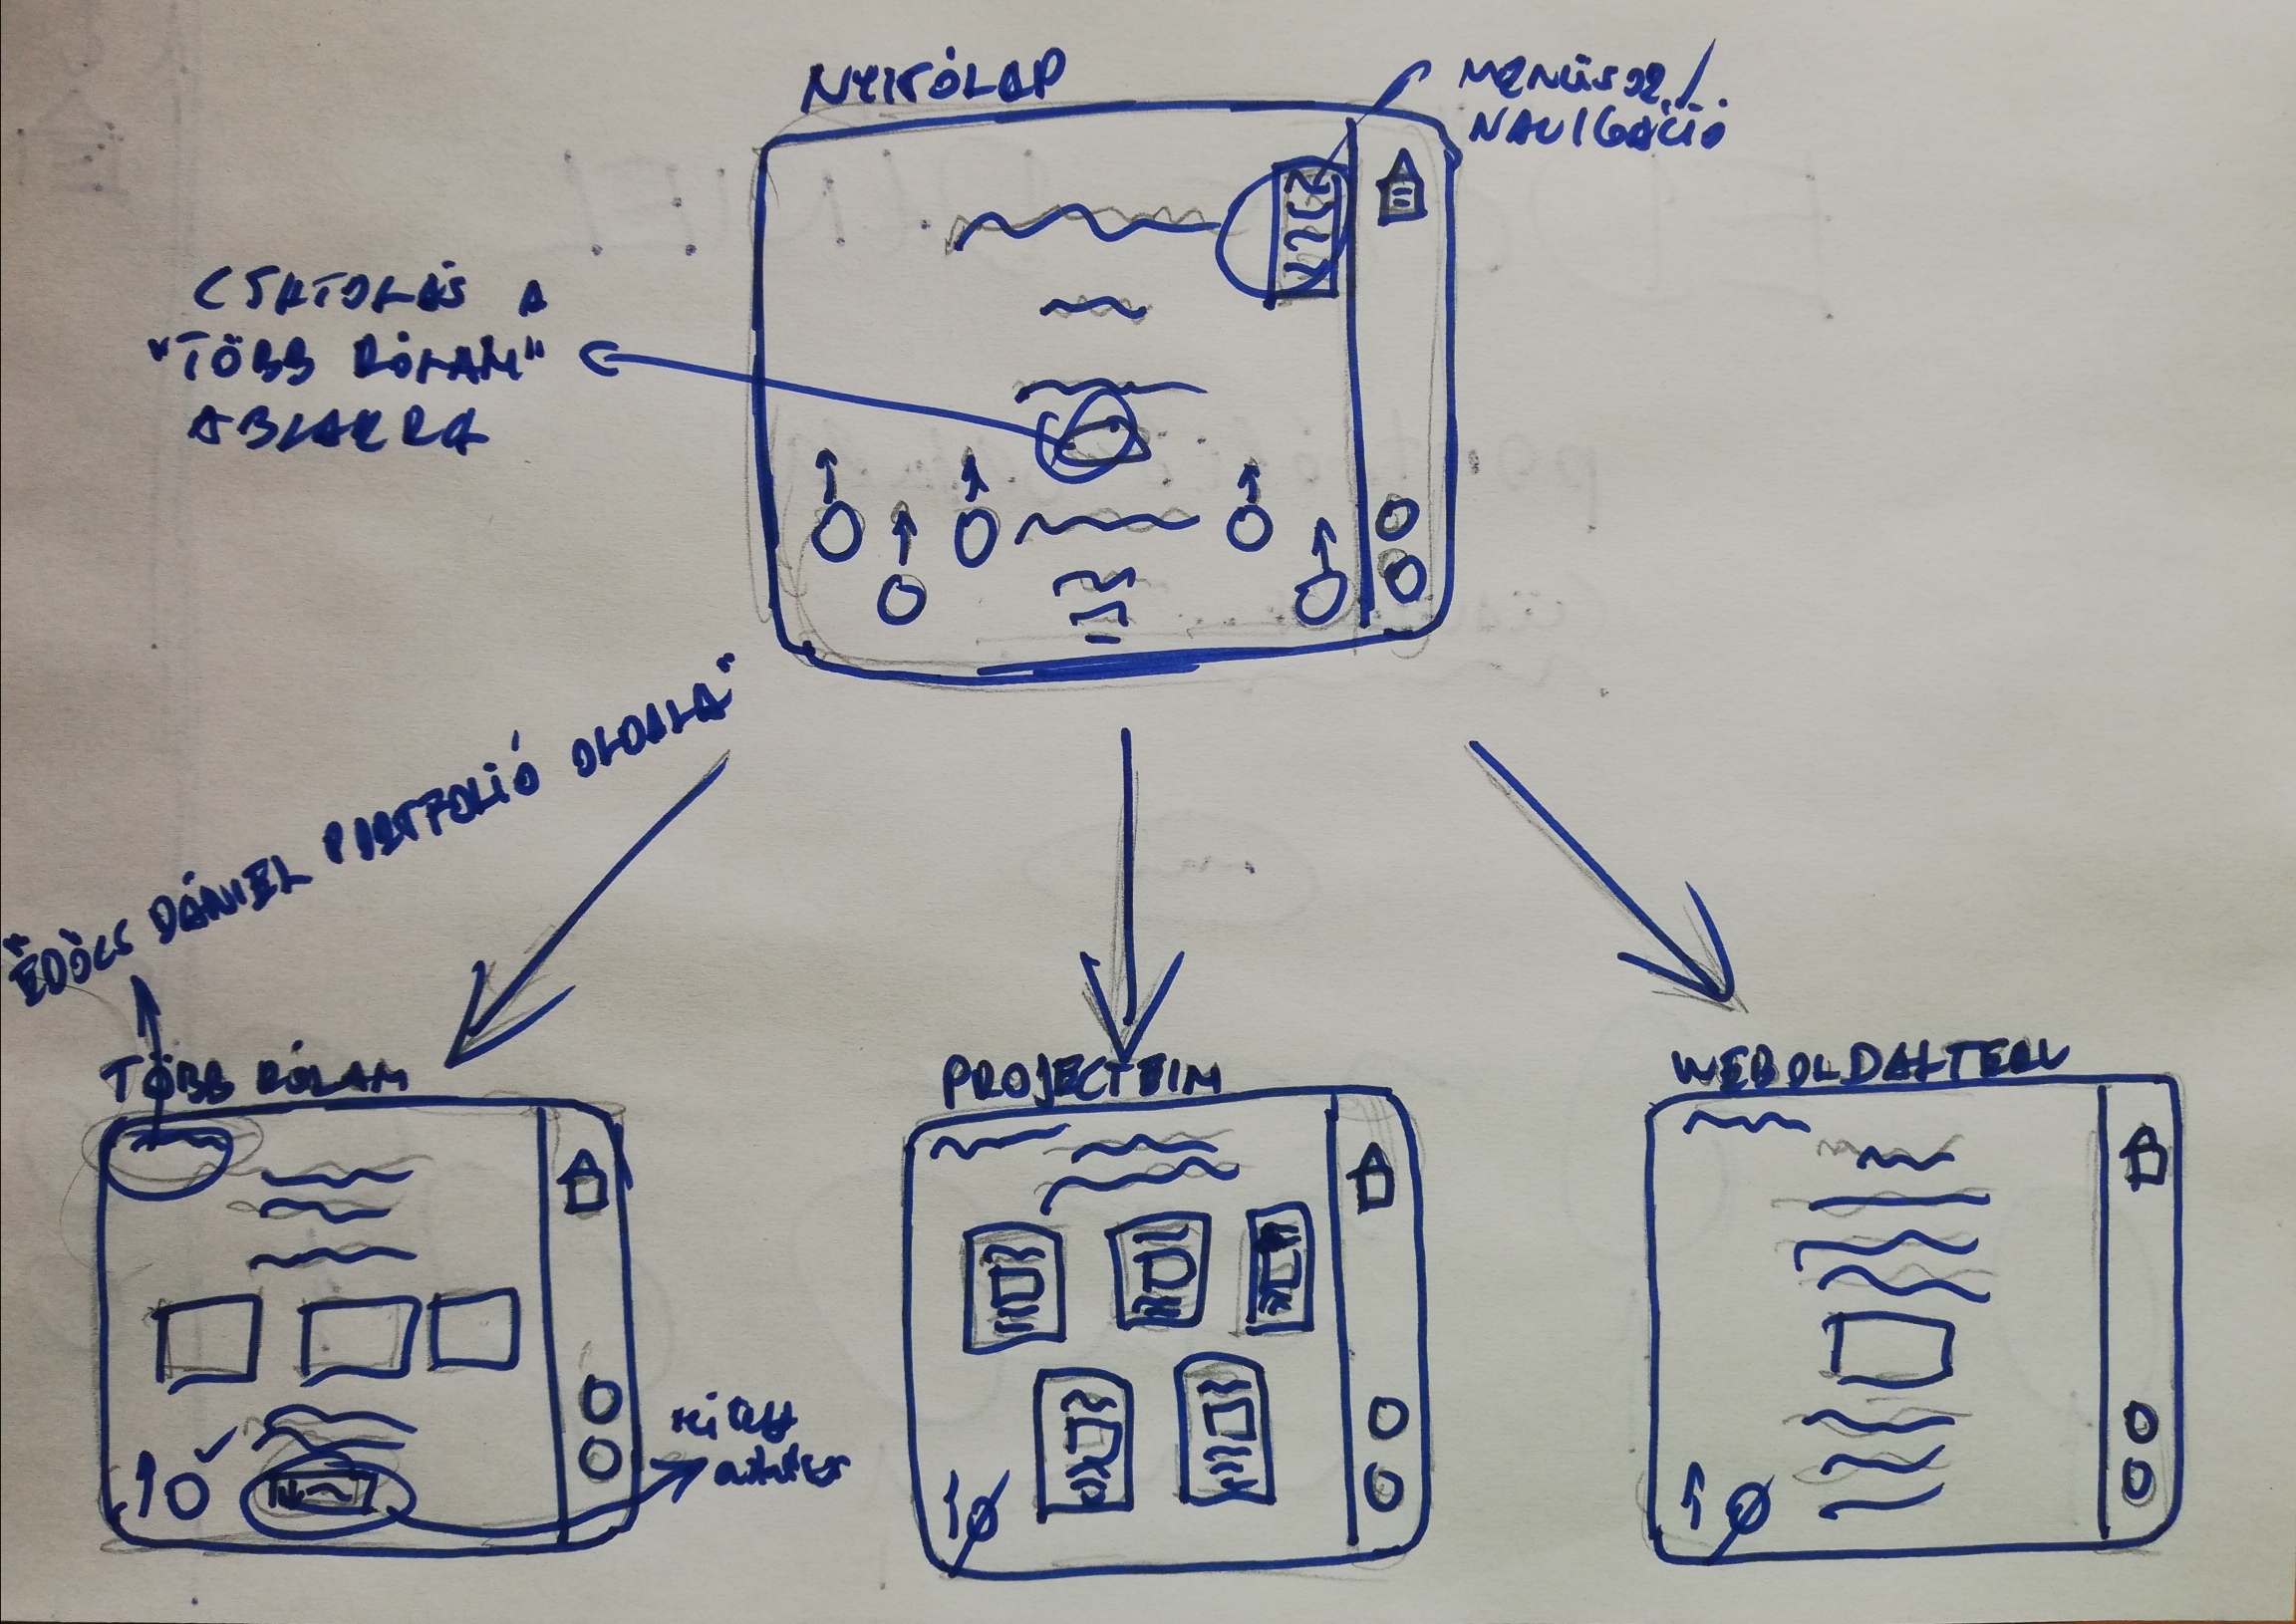 NYITÓLAP
MENÜSOR /
NAVIGÁCIÓ
CSATOLÁS A
"TÖBB RÓLAM"
ABLAKRA
"ĒDÖCS DÁNIEL PORTFOLIÓ OLDALA"
TÖBB RÓLAM
PROJECTEIM
WEBOLDALTERV